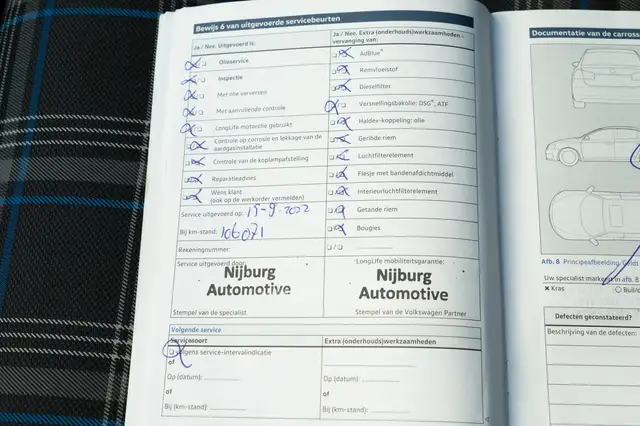 Bewijs 6 van uitgevoerde servicebeurten
Ja / Nee. Uitgevoerd is:
Ja / Nee. Extra (onderhouds)werkzaamheden –
vervanging van:
Olieservice
Inspectie
Met olie verversen
Met aanvullende controle
LongLife motorolie gebruikt
Controle op corrosie en lekkage van de
aardgasinstallatie
Controle van de koplampafstelling
Reparatieadvies
Wens klant
(ook op de werkorder vermelden)
Service uitgevoerd op: 15-9-2022
Bij km-stand: 106071
Rekeningnummer:
AdBlue®
Remvloeistof
Dieselfilter
Versnellingsbakolie: DSG®, ATF
Haldex-koppeling: olie
Geribde riem
Luchtfilterelement
Flesje met bandenafdichtmiddel
Interieurluchtfilterelement
Getande riem
Bougies
/
Service uitgevoerd door:
Nijburg
Automotive
Stempel van de specialist
LongLife mobiliteitsgarantie:
Nijburg
Automotive
Stempel van de Volkswagen Partner
Volgende service
Servicesoort
Extra (onderhouds)werkzaamheden
Volgens service-intervalindicatie
of
Op (datum):
of
Bij (km-stand):
Op (datum):
of
Bij (km-stand):
Documentatie van de carross
Afb. 8 Principeafbeelding. Geldt
Uw specialist markeert in afb. 8
x Kras
Buil/d
Defecten geconstateerd?
Beschrijving van de defecten: